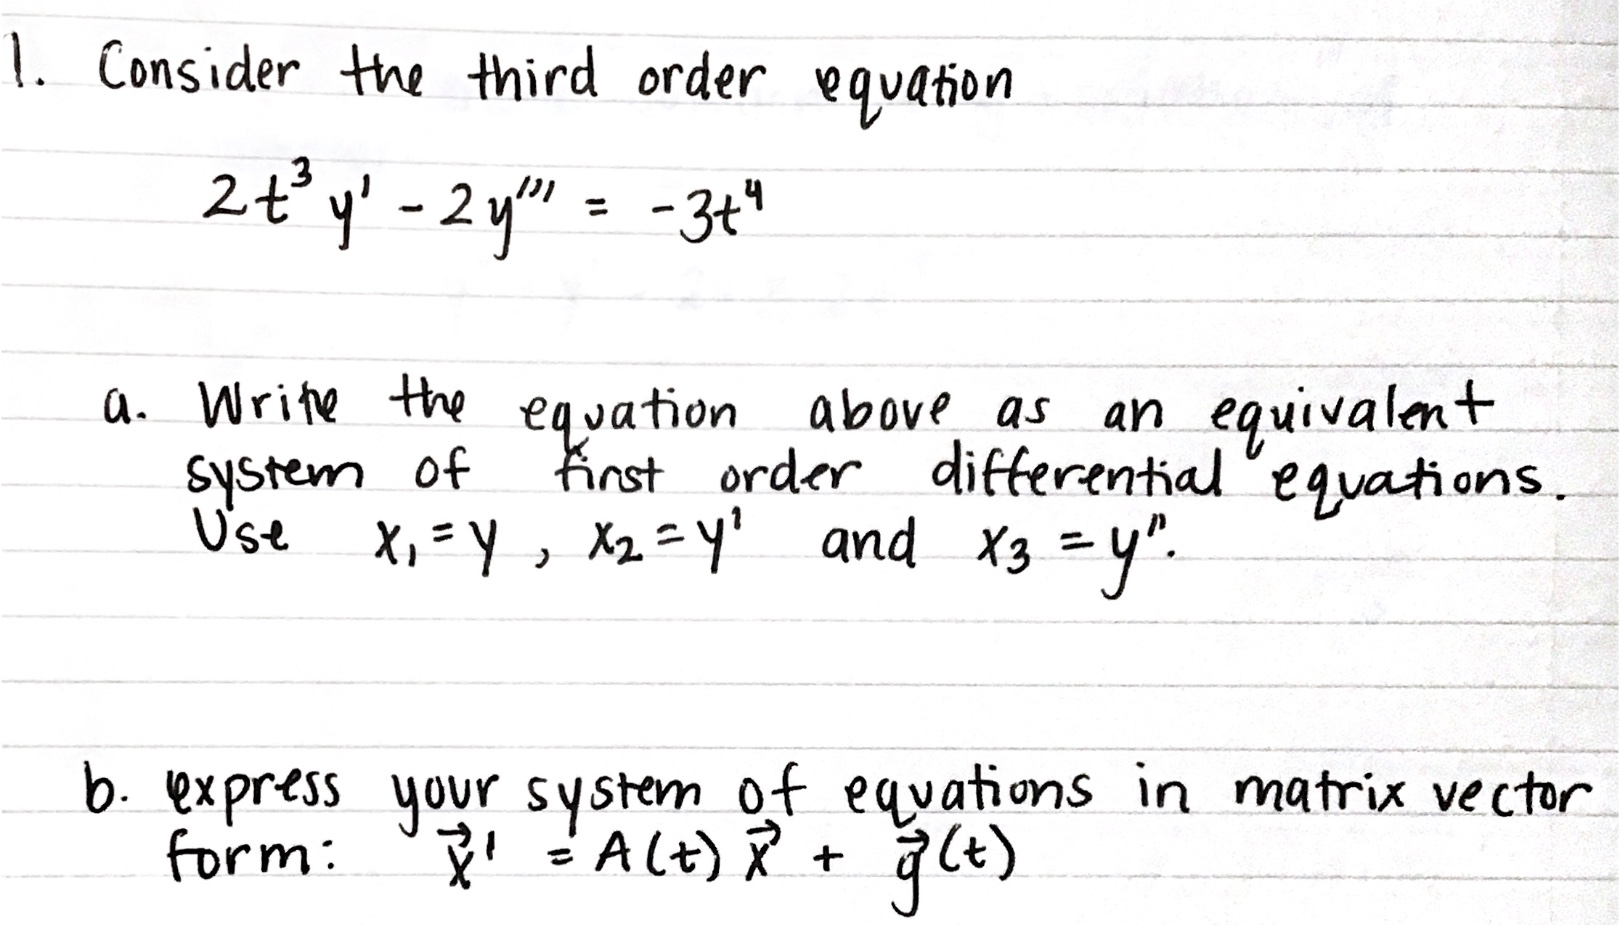 1. Consider the third order equation
2t³y' - 2y''' = -3t⁴
a. Write the equation above as an equivalent
system of first order differential equations.
Use x₁ = y , x₂ = y' and x₃ = y".
b. express your system of equations in matrix vector
form: x⃗' = A(t) x⃗ + g⃗(t)